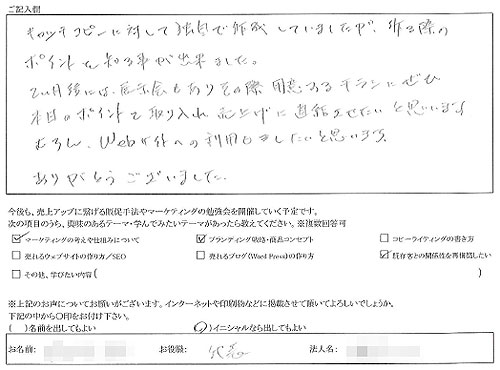 ご記入欄
キャッチコピーに対して独自で作成していましたが、作る際の
ポイントを知る事が出来ました。
2ヶ月後には、展示会もありその際用意するチラシにぜひ
本日のポイントを取り入れ売上げに直結させたいと思います
むろん、Web媒体への利用もしたいと思います。
ありがとうございました。
今後も、売上アップに繋げる販促手法やマーケティングの勉強会を開催していく予定です。
次の項目のうち、興味のあるテーマ・学んでみたいテーマがあったら教えてください。※複数回答可
マーケティングの考えや仕組みについて ブランディング戦略・商品コンセプト コピーライティングの書き方
売れるウェブサイトの作り方/SEO 売れるブログ(Word Press)の作り方 既存客との関係性を再構築したい
その他、学びたい内容( )
※上記のお声についてお願いがございます。インターネットや印刷物などに掲載させて頂いてよろしいでしょうか。
下記の中から〇印をお付け下さい。
( )名前を出してもよい (〇)イニシャルなら出してもよい
お名前: お役職: 代表 法人名: